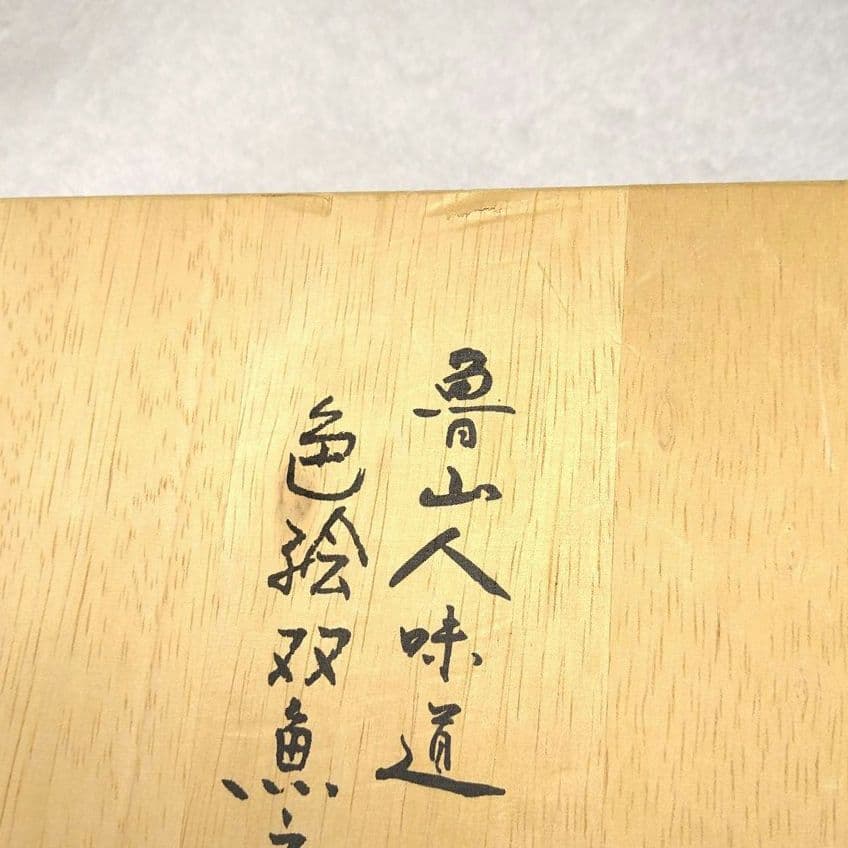 魯山人味道
色絵双魚